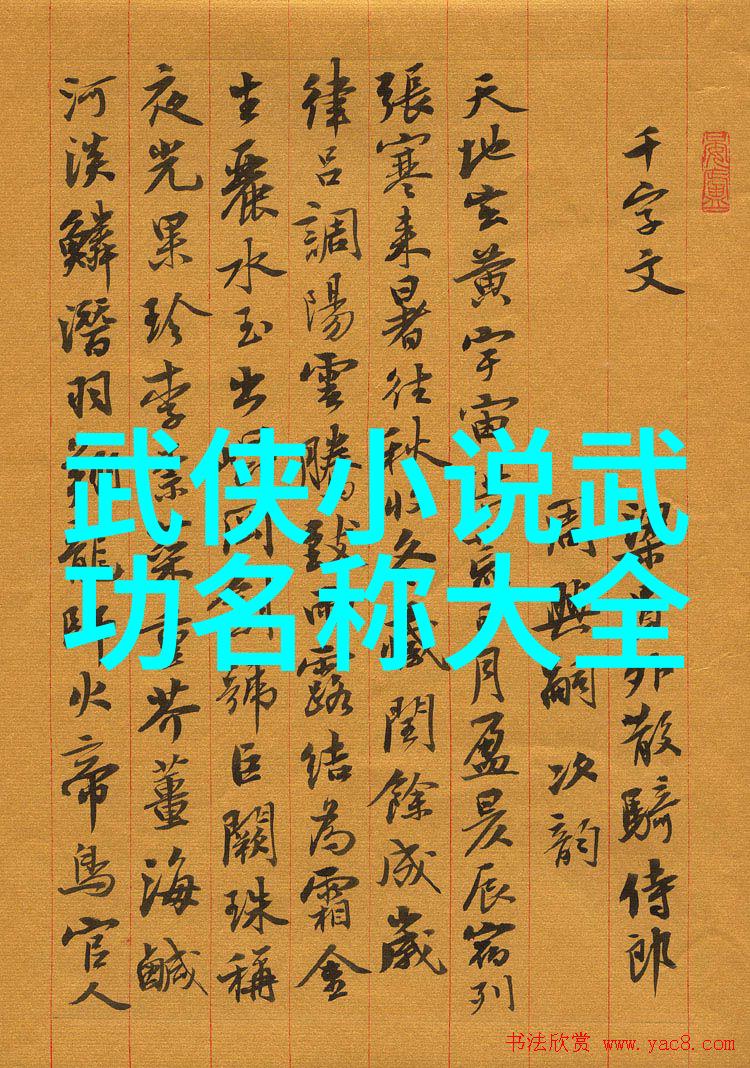 武侠小说武
功名称大全
千字文
梁員外散騎侍郎
周興嗣次韵
天地玄黄宇宙洪荒日月盈昃辰宿列
張寒来暑往秋收冬藏閏餘成歲
律吕調陽雲騰致雨露結為霜金
生麗水玉出崐岡劍號巨闕珠稱
夜光果珍李柰菜重芥薑海鹹
河淡鱗潛羽翔龍師火帝鳥官人
书法欣赏 www.yac8.com